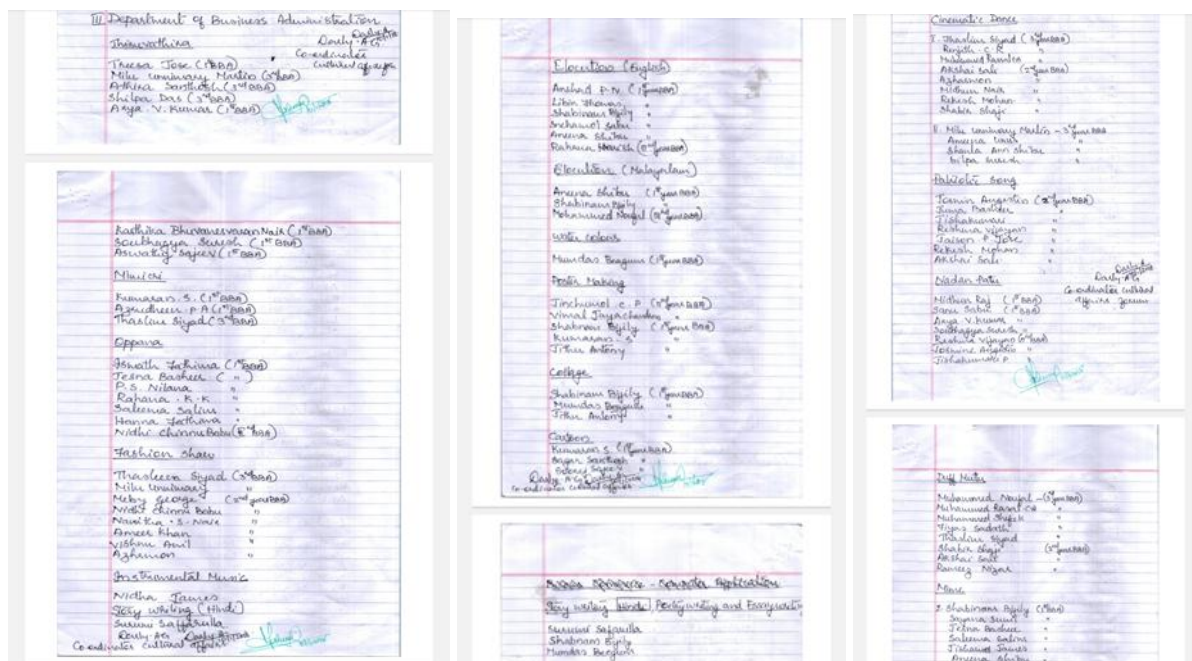 III Department of Business Administration
Thiruvathira
Co-ordinator
Cultural affairs
Theesa Jose (1st BBA)
Athira Santhosh (3rd BBA)
Shilpa Das (3rd BBA)
Arya V. Kumar (1st BBA)
Radhika Bhuvaneswaran Nair (1st BBA)
Soubhagya Suresh (1st BBA)
Aswathy Sajeev (1st BBA)
Mimicri
Kumaran. S. (1st BBA)
Azrudheen. P A (1st BBA)
Thaslim Siyad (3rd BBA)
Oppana
Fathima (1st BBA)
Jesna Basheer ( " )
P.S. Nilana "
Rahana. K. K "
Saleema Salim "
Hanna Fathima "
Nidhi Chinnu Babu
Fashion Show
Thasleem Siyad (3rd BBA)
Milu
Meby George " (2nd year BBA)
Nidhi Chinnu Babu "
Namitha. S. Nair "
Ameer Khan "
Vishnu Anil "
Azhimon "
Instrumental Music
Nidha James
Story writing (Hindi)
Surumi Saffarulla
Co-ordinator cultural affairs
Elocution (English)
Arshad P. N. (1st year BBA)
Libin Thomas "
Shabinam Bijily "
Snehamol Sabu "
Aneena Shibu "
Elocution (Malayalam)
Aneena Shibu (1st year BBA)
Shabinam Bijily "
Mohammed Noufal
Water Colours
Mumdas Beegum (1st year BBA)
Poster Making
Jinchumol C. P (3rd year BBA)
Vimal Jayachandran "
Shabnam Bijily (1st year BBA)
Kumaran S "
Jithu Antony "
Collage
Shabinam Bijily (1st year BBA)
Mumdas Beegum "
Jithu Antony "
Cartoon
Kumaran S. (1st year BBA)
Sagar Santhosh "
Co-ordinator cultural affairs
Computer Application
Story writing Hindi, Poetry writing and Essay writing
Surumi Safarulla
Shabnam Bijily
Mumdas Beegum
Cinematic Dance
I. Thaslim Siyad (3rd year BBA)
Renjith. C. R "
Muhammed "
Akshai Sali
Midhun Nair "
Rekesh Mohan "
Shabin Shaji "
II. Milu Martin - 3rd year BBA
Ameena "
Sheula Ann Shibu "
Silpa Suresh "
Patriotic Song
Josmin Augustin
Jisna Basheer "
Jishakumari "
Reshma Vijayan "
Jaison P Jose "
Rekesh Mohan "
Akshai Sali "
Nadan Pattu
Co-ordinator cultural
affairs forum
Midhun Raj (1st BBA)
Sanu Sabu (1st BBA)
Arya V. Kumar "
Soubhagya Suresh "
Reshma Vijayan
Josmine Augustin "
Jishakumari P "
Duff Muttu
Muhammed Noufal - (3rd year BBA)
Muhammed "
Muhammed Shefeek "
Thaslim Siyad "
Shabin Shaji
Akshai Sali "
Rameez Nizar "
Mime
Shabinam Bijily (1st BBA)
Sayana "
Jesna Basheer "
Saleema Salim "
James "
Aneena Shibu "